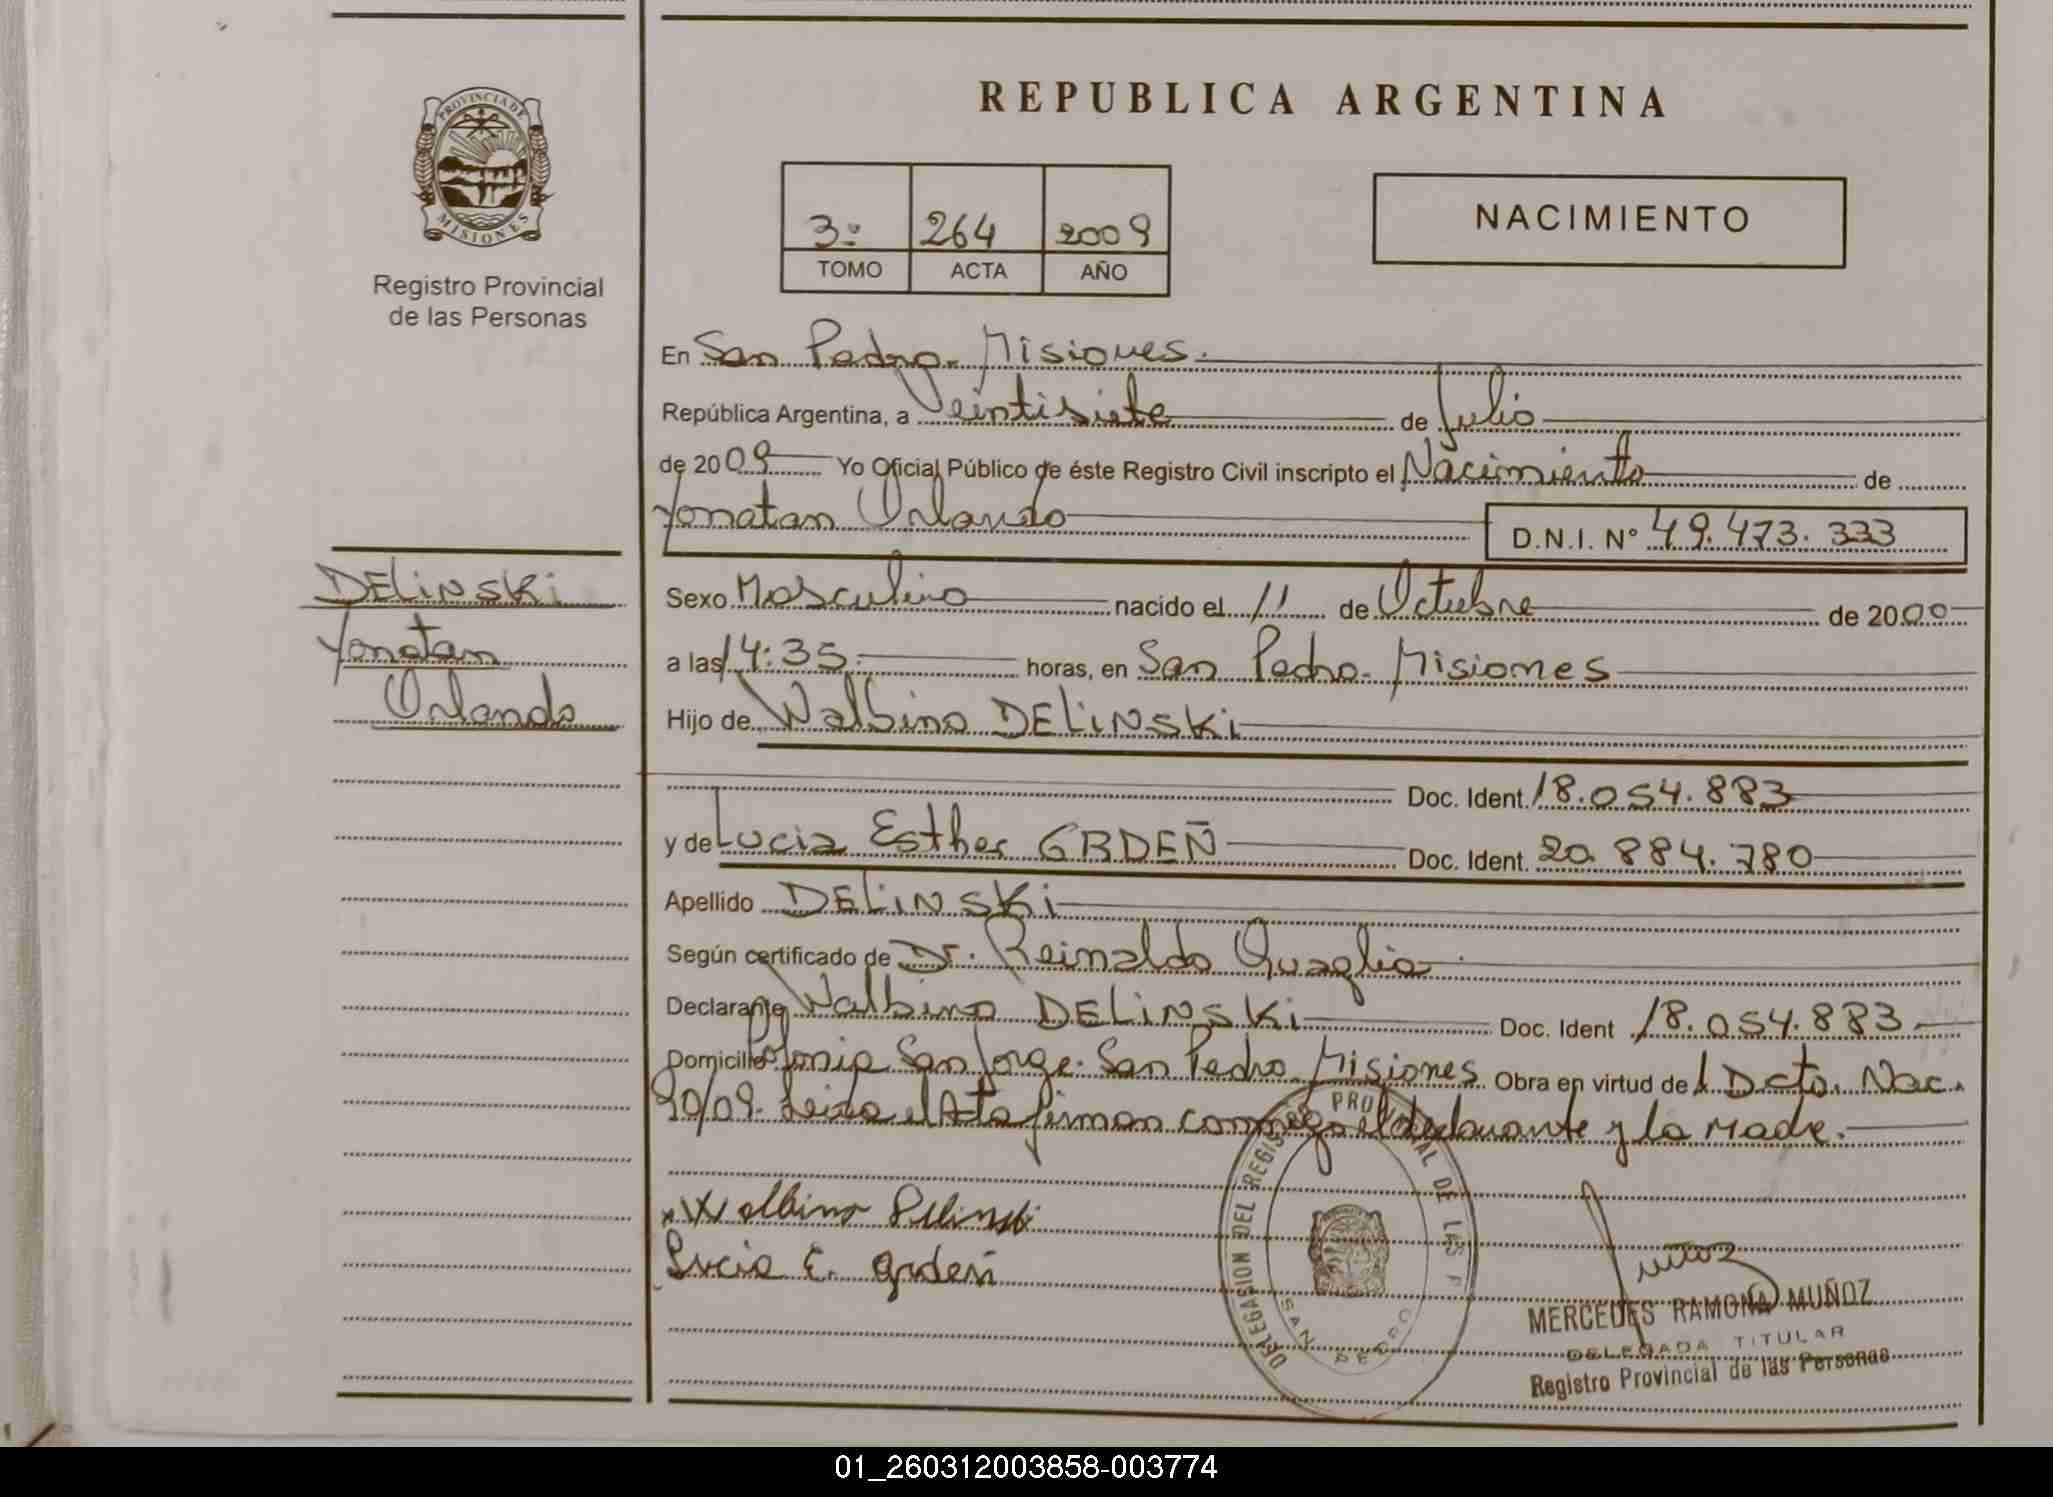 PROVINCIA DE
MISIONES
Registro Provincial
de las Personas
DELINSKI
Yonatan
Orlando
REPUBLICA ARGENTINA
3º 264 2009
TOMO ACTA AÑO
NACIMIENTO
En San Pedro. Misiones.
República Argentina, a Veintisiete de Julio
de 2009 Yo Oficial Público de éste Registro Civil inscripto el Nacimiento de
Yonatan Orlando D.N.I. Nº 49.473.333
Sexo Masculino nacido el 11 de Octubre de 2000
a las 14:35. horas, en San Pedro. Misiones
Hijo de Walbino DELINSKI
Doc. Ident. 18.054.883
y de Lucia Esther GRDEÑ Doc. Ident. 20.884.780
Apellido DELINSKI
Según certificado de Dr. Reinaldo Quaglia
Declarante Walbino DELINSKI Doc. Ident 18.054.883
Domicilio Colonia San Jorge. San Pedro. Misiones. Obra en virtud de Dcto. Nac.
90/09. Leida el Acta firman conmigo el declarante y la Madre.
x Walbino Delinski
Lucia E. grdeñ
DELEGASION DEL REGISTRO PROVINCIAL DE LAS P
SAN PEDRO
MERCEDES RAMONA MUÑOZ
DELEGADA TITULAR
Registro Provincial de las Personas
01_260312003858-003774